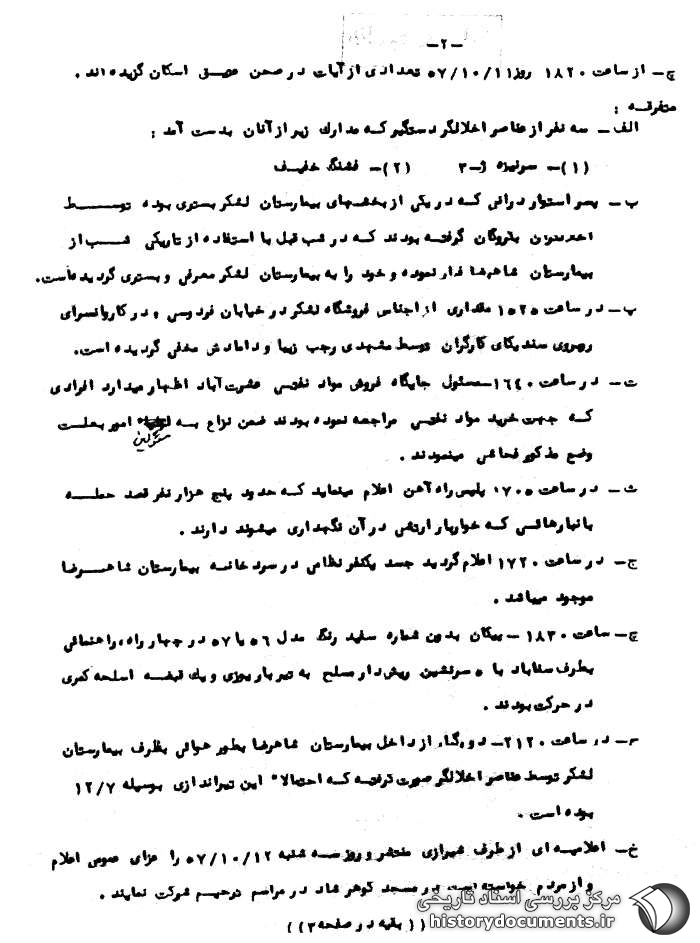 -۲-
چ- از ساعت ۱۸۲۰ روز ۵۷/۱۰/۱۱ تعدادی از آیات در صحن عتیق اسکان گزیده‌اند .
متفرقه :
الف- سه نفر از عناصر اخلالگر دستگیر که مدارك زیر از آنان بدست آمد :
(۱)- سرنیزه ژ-۳ (۲)- فشنگ خفیف
ب- پسر استوار درانی که در یکی از بخشهای بیمارستان لشکر بستری بوده توسط
گروگان گرفته بودند که در شب قبل با استفاده از تاریکی شب از
بیمارستان شاهرضا فرار نموده و خود را به بیمارستان لشکر معرفی و بستری گردیده‌است.
پ- در ساعت ۱۵۲۵ مقداری از اجناس فروشگاه لشکر در خیابان فردوسی و در کاروانسرای
روبروی سندیکای کارگران توسط مشهدی رجب زیبا و دامادش مخفی گردیده است.
ت- در ساعت ۱۶۴۰-مسئول جایگاه فروش مواد نفتی عشرت‌آباد اظهار میدارد افرادی
که جهت خرید مواد نفتی مراجعه نموده بودند ضمن نزاع به امور بعلت
وضع مذکور فحاشی مینمودند .
ث- در ساعت ۱۷۰۵ پلیس راه آهن اعلام مینماید که حدود پنج هزار نفر قصد حمله
بانبارهائی که خواربار ارتش در آن نگهداری میشوند دارند .
ج- در ساعت ۱۷۲۰ اعلام گردید جسد یکنفر نظامی در سردخانه بیمارستان شاهرضا
موجود میباشد .
چ- ساعت ۱۸۳۰ - پیکان بدون شماره سفید رنگ مدل ۵۶ یا ۵۷ در چهار راه راهنمائی
بطرف سناباد با ۵ سرنشین ریش‌دار مسلح به تیربار یوزی و یك قبضه اسلحه کمری
در حرکت بودند .
ح- در ساعت ۲۱۲۰- دو از داخل بیمارستان شاهرضا بطور هوائی بطرف بیمارستان
لشکر توسط عناصر اخلالگر صورت گرفته که احتمالا" این تیراندازی بوسیله ۱۲/۷
بوده است .
خ- اعلامیه ای از طرف شیرازی منتشر و روز سه شنبه ۵۷/۱۰/۱۲ را عزای عمومی اعلام
و از مردم خواسته است در مسجد گوهر شاد در مراسم ترحیم شرکت نمایند .
(( بقیه در صفحه۳ ))
مرکز بررسی اسناد تاریخی
historydocuments.ir